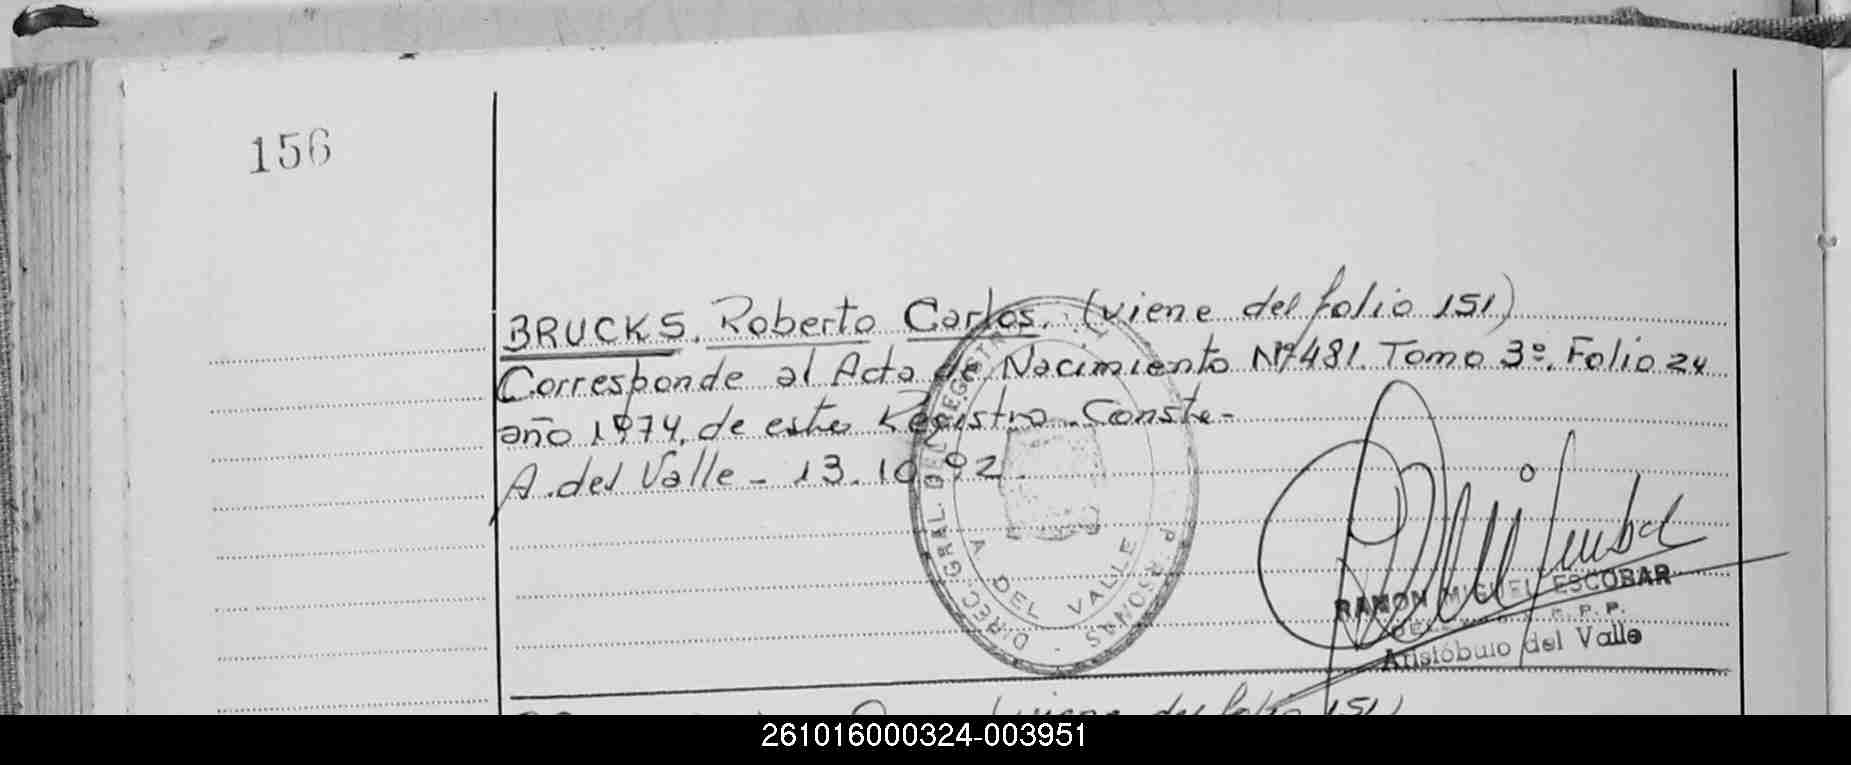 156
BRUCKS, Roberto Carlos. (viene del folio 151)
Corresponde al Acta de Nacimiento Nº 481. Tomo 3º. Folio 24
año 1974, de este Registro. Conste-
A. del Valle - 13.10.92.
DIREC. GRAL. DEL REGISTRO P. PERSONAS
A DEL VALLE
RAMON MIGUEL ESCOBAR
R. P. P.
Aristóbulo del Valle
(viene del folio 151)
261016000324-003951